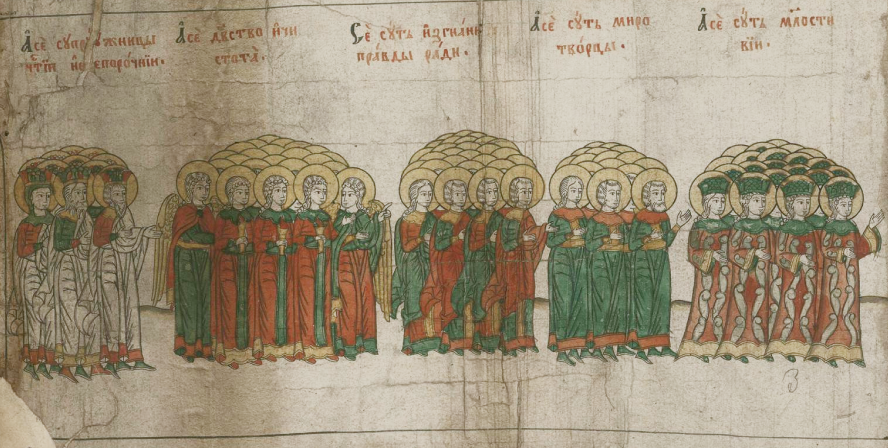 А҆сѐ супрꙋжницы
чⷭ҇тїи непоро́чнїи.
А҆сѐ дѣ́вство и҆ чи
стота̀.
Сѐ сꙋ́ть и҆згна́ни
пра́вды ра́ди.
А҆сѐ сꙋ́ть миро
тво́рцы.
А҆сѐ сꙋ́ть млⷭ҇ти
вїи.